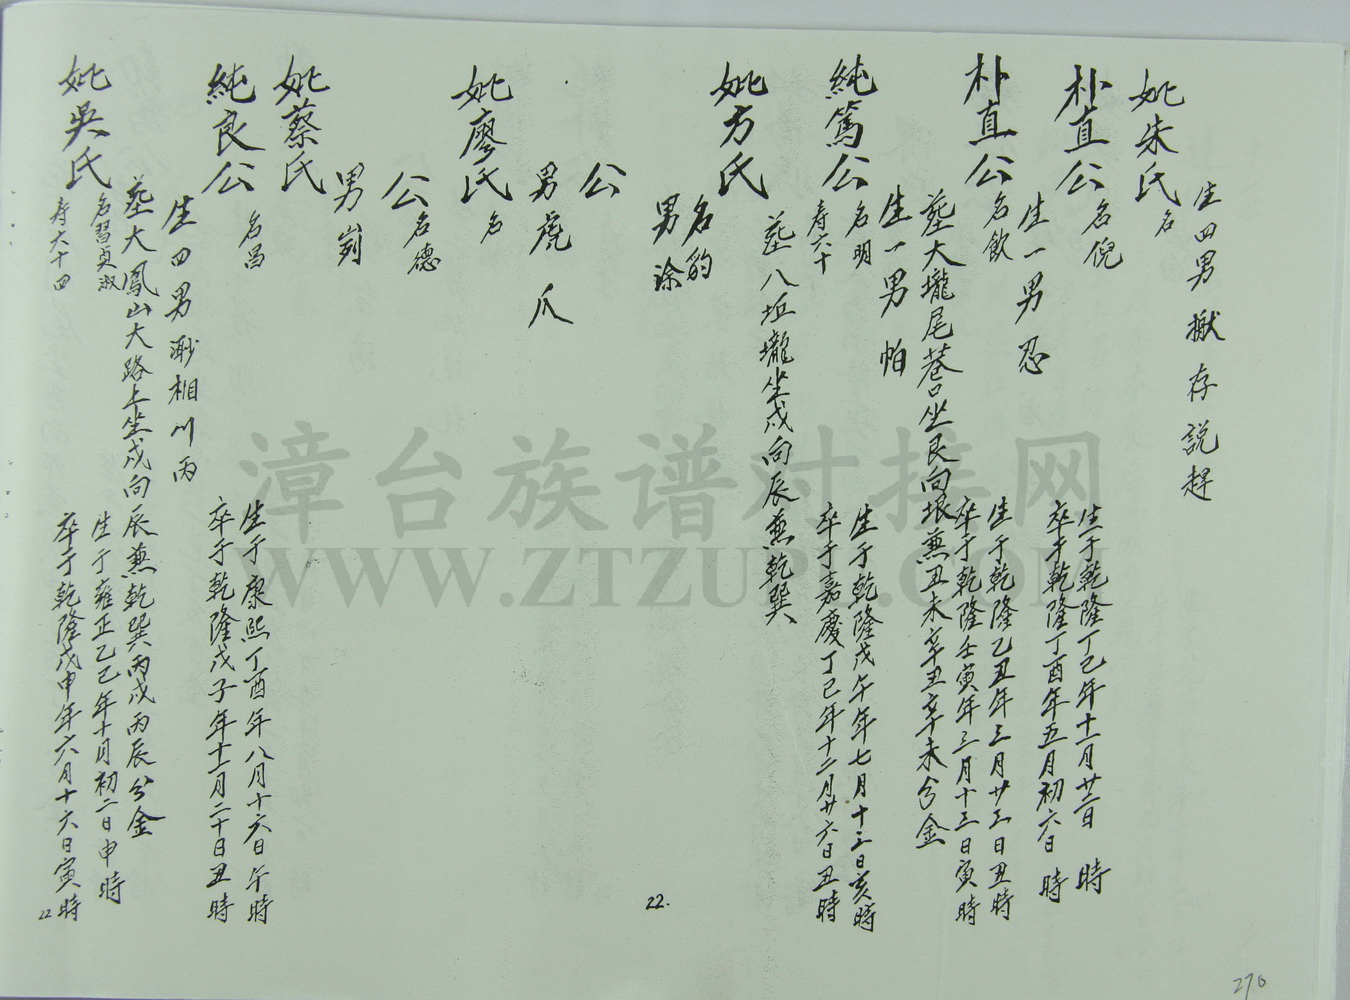 生四男 獄 存 説 趕
妣朱氏 名
朴直公 名倪
生于乾隆丁巳年十一月廿二日 時
卒于乾隆丁酉年五月初六日 時
生一男 忍
朴直公 名飲
生于乾隆乙丑年三月廿三日丑時
卒于乾隆壬寅年三月十三日寅時
葬大壠尾巷口坐艮向垠兼丑未辛丑辛未分金
生一男 帕
純篤公 名明
壽六十
生于乾隆戊午年七月十三日亥時
卒于嘉慶丁巳年十二月廿六日丑時
葬八坵壠坐戌向辰兼乾巽
妣方氏
名豹
男 涂
公
男 虎 爪
妣廖氏 名
公 名德
男
妣蔡氏
純良公 名昌
生于康熙丁酉年八月十六日午時
卒于乾隆戊子年十一月二十日丑時
生四男 渺 相 川 丙
葬大鳳山大路上坐戌向辰兼乾巽丙戌丙辰分金
妣吳氏 名習貞淑
壽六十四
生于雍正乙巳年十月初二日申時
卒于乾隆戊申年六月十六日寅時
22.
22
270
漳台族谱对接网
WWW.ZTZUPU.COM